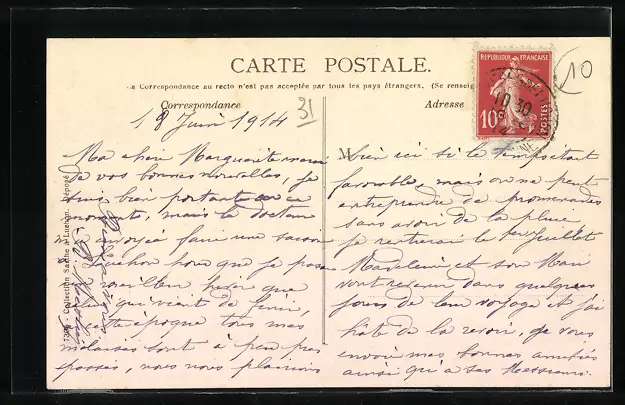 CARTE POSTALE.
La Correspondance au recto n'est pas acceptée par tous les pays étrangers. (Se renseig
Correspondance
Adresse
31
10
REPUBLIQUE FRANÇAISE
10c
POSTES
10 30
18 Juin 1914
Ma chere Marguerite merci
de vos bonnes nouvelles, je
suis bien portante en ce
moment, mais le docteur
m'a envoyée faire une saison
Luchon pour que je passe
un meilleur hiver que
celui qui vient de finir,
cette époque tous mes
malaises sont à peu près
passés, nous nous plairions
M
bien ici si le temps était
favorable, mais on ne peut
entreprendre de promenades
sans avoir de la pluie
je rentrerai le 1er Juillet
Madeleine et son Mari
vont revenir dans quelques
jours de leur voyage et j'ai
hâte de la revoir, je vous
envoie mes bonnes amitiés
ainsi qu'à ses Messieurs.
Collection Sacthe à Luchon. Déposé